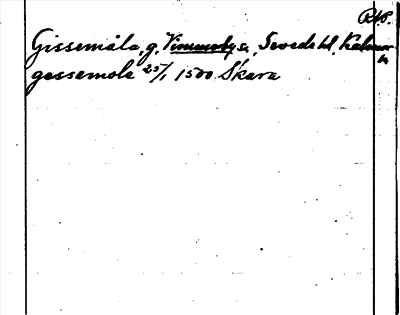 RAP.
Gissemåla, g, Vimmerby sn, Sevede hd, Kalmar
ln
gessemole 25/1 1500 Skara